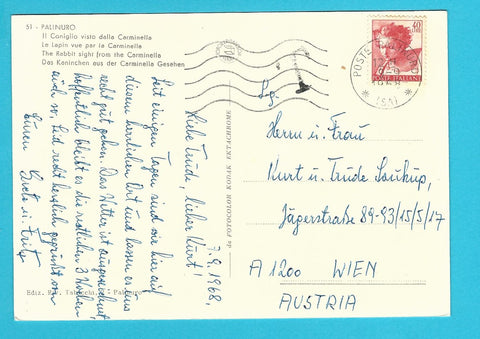 51 - PALINURO
Il Coniglio visto dalla Carminella
Le Lapin vue par la Carminella
The Rabbit sight from the Carminella
Das Kaninchen aus der Carminella Gesehen
7.9.1968,
Liebe Trude, lieber Kurt!
Seit einigen Tagen sind wir hier auf
diesem herrlichen Ort und lassen es uns
recht gut gehen. Das Wetter ist ausgezeichnet,
hoffentlich bleibt es die restlichen 3 Wochen
auch so. Seid recht herzlich gegrüßt von
Euren Grete u. Fritz
Ediz.
da FOTOCOLOR KODAK EKTACHROME
40
LIRE
POSTE ITALIANE
POSTE
(SA)
Herrn u. Frau
Kurt u. Trude Soukup,
Jägerstraße 89-93/15/5/17
A 1200 WIEN
AUSTRIA